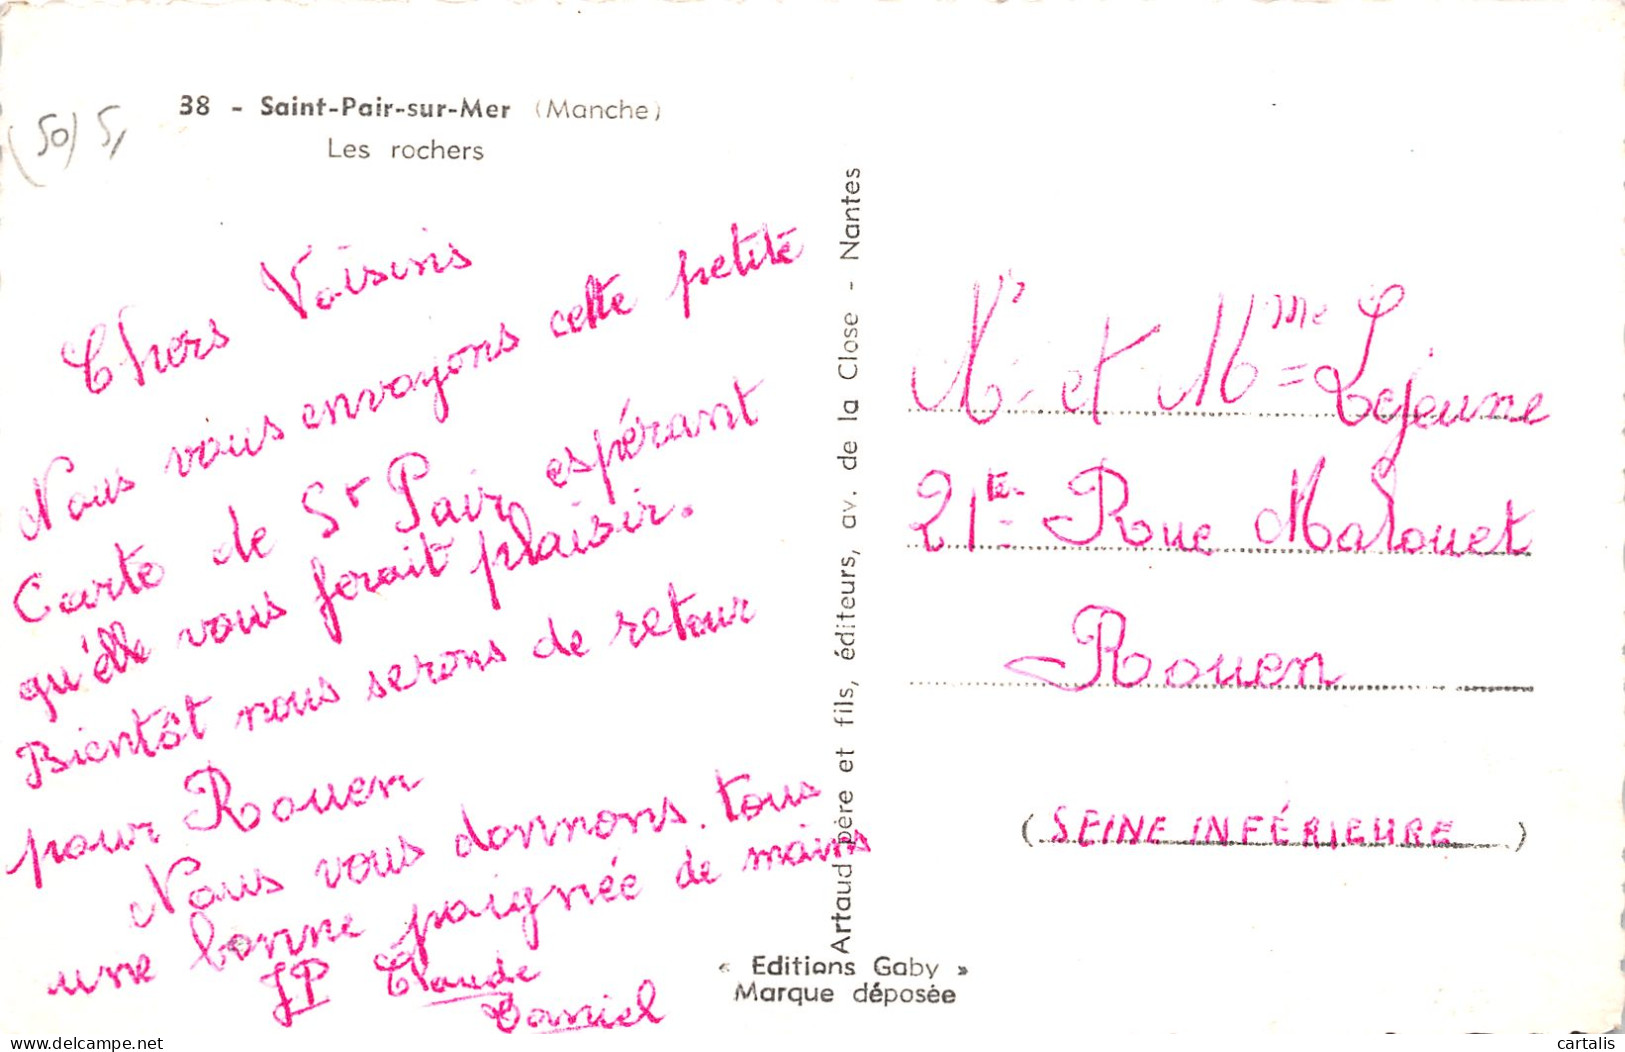 (50) 5,
38 - Saint-Pair-sur-Mer (Manche)
Les rochers
Chers Voisins
Nous vous envoyons cette petite
Carte de St Pair espérant
qu'elle vous ferait plaisir.
Bientôt nous serons de retour
pour Rouen
Nous vous donnons tous
une bonne poignée de mains
JP Claude
Daniel
Artaud père et fils, éditeurs, av. de la Close - Nantes
« Editions Gaby »
Marque déposée
Mr et Mme Lejeune
21 ter Rue Malouet
Rouen
(SEINE INFÉRIEURE)
delcampe.net
cartalis